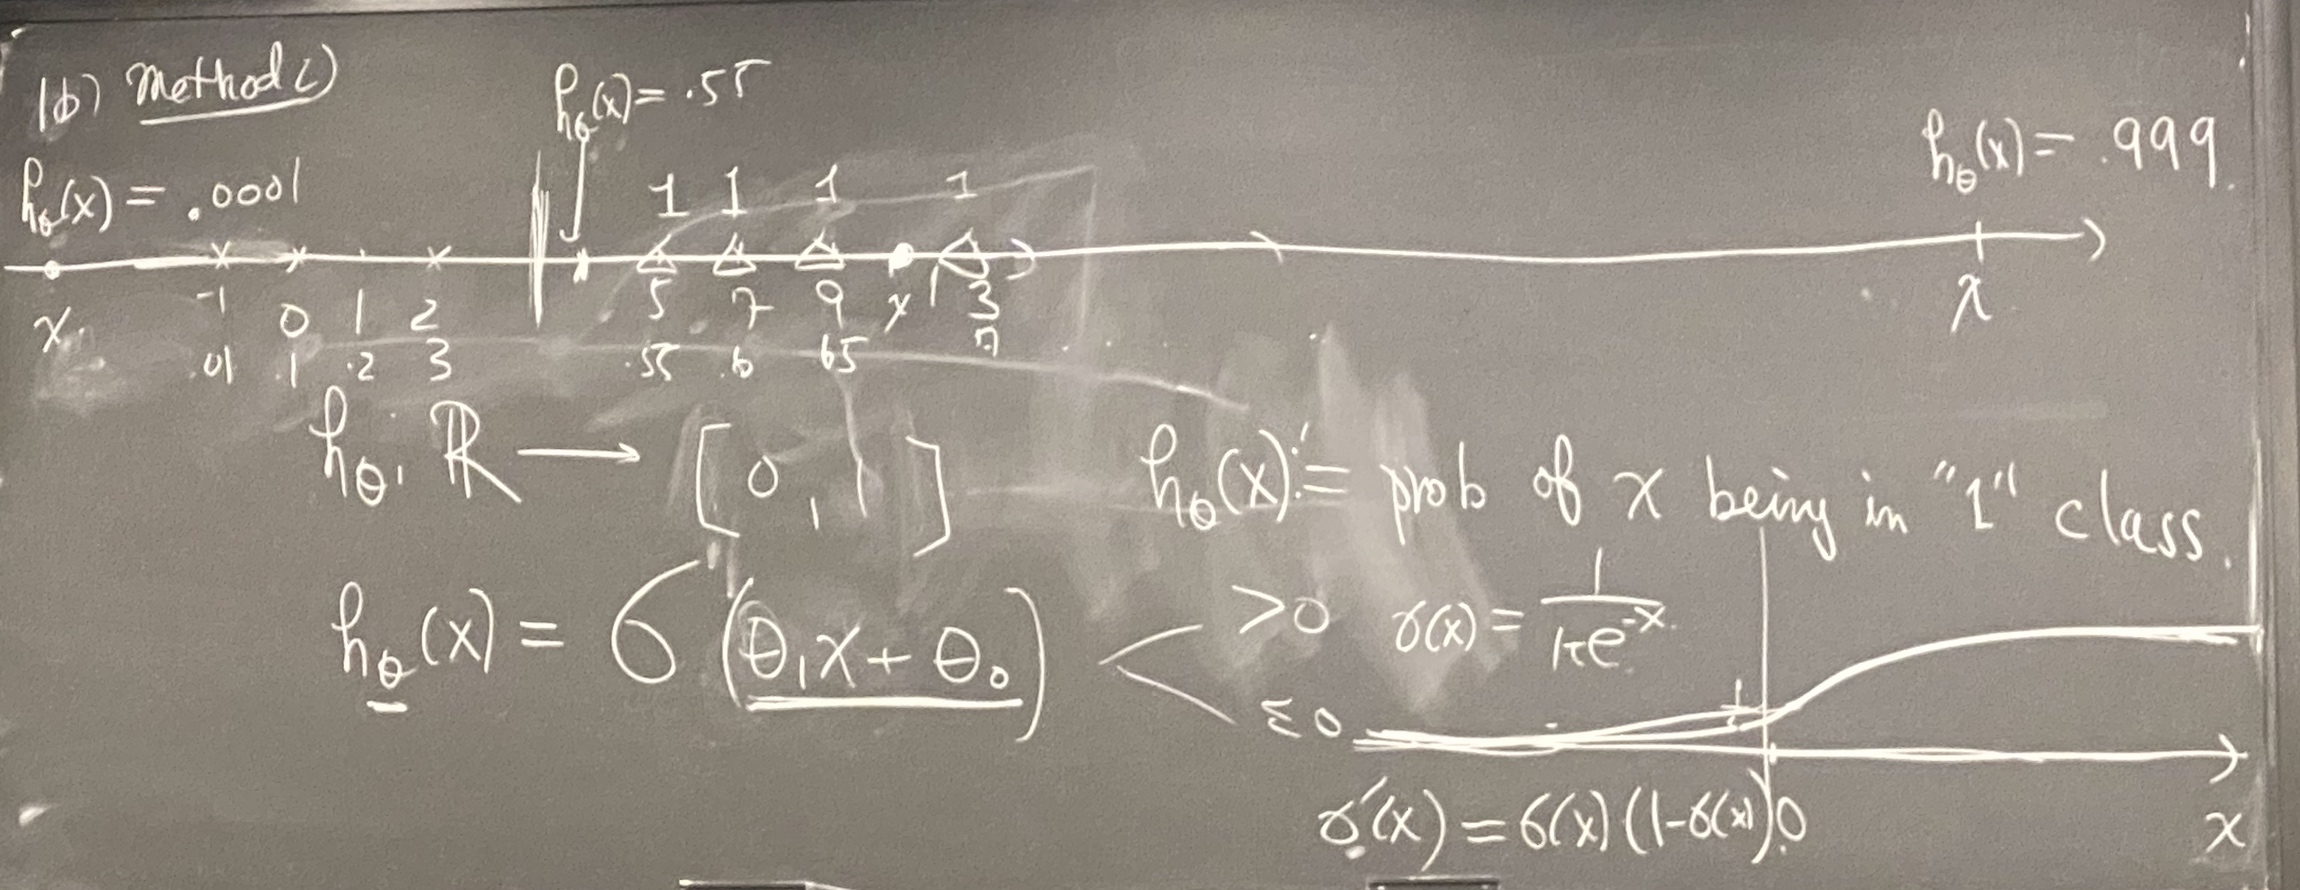 1b) Method c)
h_θ(x) = .55
h_θ(x) = .0001
h_θ(x) = .999
1 1 1 1
x -1 0 1 2 5 7 9 x 13 x
.01 .1 .2 3 .55 .6 65 .7
h_θ: ℝ → [0, 1] h_θ(x) := prob of x being in "1" class.
h_θ(x) = σ(θ₁x + θ₀) < >0 ≤0
σ(x) = 1/(1+e^-x)
σ'(x) = σ(x)(1-σ(x))
0 x